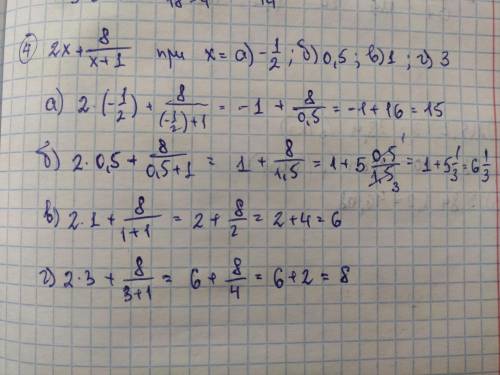 ④ 2x + 8/(x+1) при x = а) -1/2; б) 0,5; в) 1; г) 3
а) 2·(-1/2) + 8/((-1/2)+1) = -1 + 8/0,5 = -1+16 = 15
б) 2·0,5 + 8/(0,5+1) = 1 + 8/1,5 = 1+5 0,5¹/1,5₃ = 1+5 1/3 = 6 1/3
в) 2·1 + 8/(1+1) = 2 + 8/2 = 2+4 = 6
г) 2·3 + 8/(3+1) = 6 + 8/4 = 6+2 = 8